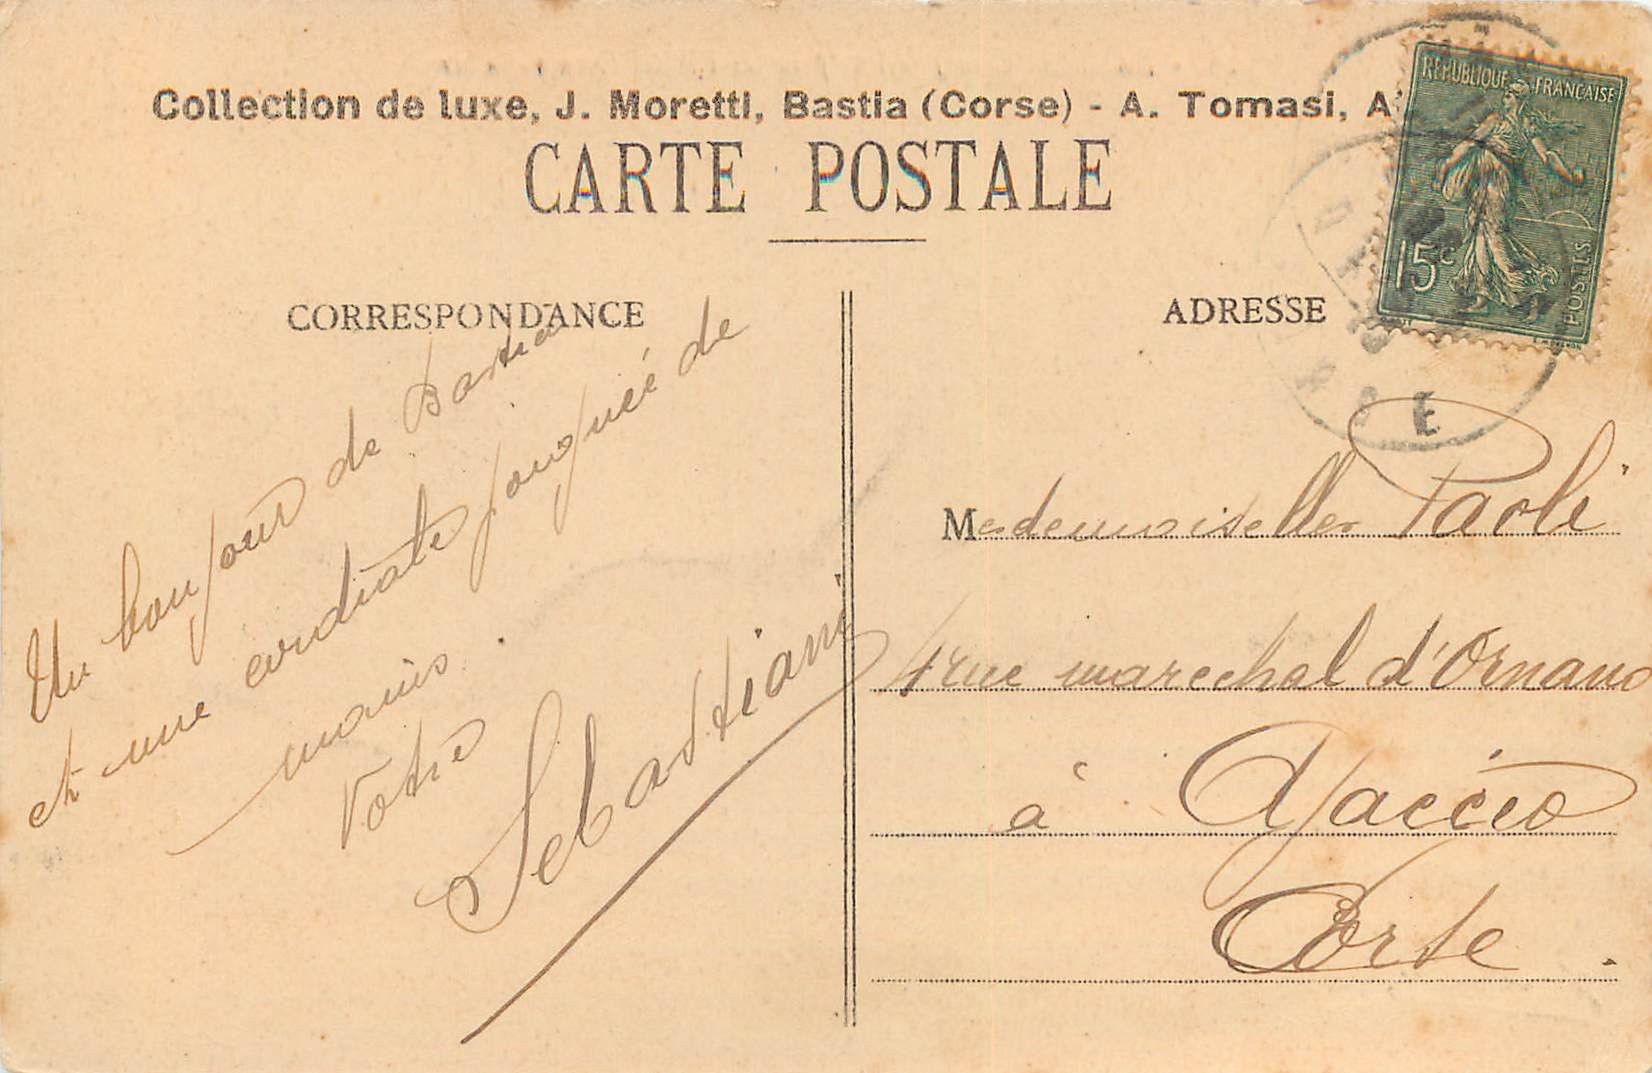 Collection de luxe, J. Moretti, Bastia (Corse) - A. Tomasi, A
CARTE POSTALE
CORRESPONDANCE
ADRESSE
REPUBLIQUE FRANÇAISE
15c
POSTES
Un bonjour de Bastia
et une cordiale poignée de
mains
Votre
Sebastiani
Mademoiselle Paoli
4 rue marechal d'Ornano
à Ajaccio
Corse.